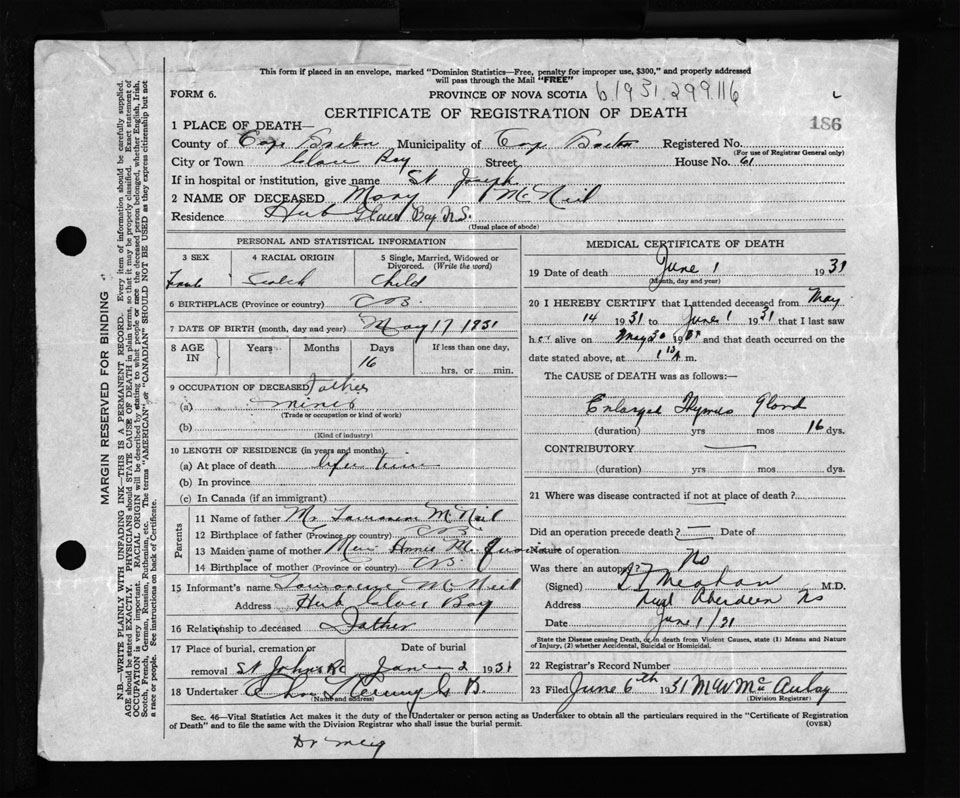 This form if placed in an envelope, marked "Dominion Statistics—Free, penalty for improper use, $300," and properly addressed
will pass through the Mail "FREE"
FORM 6.
PROVINCE OF NOVA SCOTIA 6.1931.299.116
CERTIFICATE OF REGISTRATION OF DEATH
186
1 PLACE OF DEATH—
County of Cape Breton Municipality of Cape Breton Registered No.
(For use of Registrar General only)
City or Town Glace Bay Street House No. 61
If in hospital or institution, give name St Joseph
2 NAME OF DECEASED Mary McNeil
Residence Hub Glace Bay N.S.
(Usual place of abode)
PERSONAL AND STATISTICAL INFORMATION
3 SEX 4 RACIAL ORIGIN 5 Single, Married, Widowed or Divorced. (Write the word)
Scotch Child
6 BIRTHPLACE (Province or country) C B.
7 DATE OF BIRTH (month, day and year) May 17 1931
8 AGE IN Years Months Days If less than one day,
16 hrs. or min.
9 OCCUPATION OF DECEASED Father
(a) miner
(Trade or occupation or kind of work)
(b)
(Kind of industry)
10 LENGTH OF RESIDENCE (in years and months)
(a) At place of death life time
(b) In province
(c) In Canada (if an immigrant)
Parents
11 Name of father Mr Lawrence McNeil
12 Birthplace of father (Province or country) C B.
13 Maiden name of mother Annie Mc
14 Birthplace of mother (Province or country) C B.
15 Informant's name Lawrence McNeil
Address Hub Glace Bay
16 Relationship to deceased Father
17 Place of burial, cremation or removal Date of burial
St Johns June 2 1931
18 Undertaker
(Name and address)
MEDICAL CERTIFICATE OF DEATH
19 Date of death June 1 1931
(Month, day and year)
20 I HEREBY CERTIFY that I attended deceased from May
14 1931 to June 1 1931 that I last saw
h er alive on May 30 1931 and that death occurred on the
date stated above, at m.
The CAUSE of DEATH was as follows:—
Enlarged Thymus Gland
(duration) yrs mos 16 dys.
CONTRIBUTORY
(duration) yrs mos dys.
21 Where was disease contracted if not at place of death?
Did an operation precede death? — Date of
Nature of operation
Was there an autopsy? No
(Signed) Meahan M.D.
Address Aberdeen NS
Date June 1/31
State the Disease causing Death, or, in death from Violent Causes, state (1) Means and Nature
of Injury, (2) whether Accidental, Suicidal or Homicidal.
22 Registrar's Record Number
23 Filed June 6th 1931 M W McAulay
(Division Registrar)
Sec. 46—Vital Statistics Act makes it the duty of the Undertaker or person acting as Undertaker to obtain all the particulars required in the "Certificate of Registration
of Death" and to file the same with the Division Registrar who shall issue the burial permit. (OVER)
MARGIN RESERVED FOR BINDING
N.B.—WRITE PLAINLY WITH UNFADING INK—THIS IS A PERMANENT RECORD. Every item of information should be carefully supplied.
AGE should be stated EXACTLY. PHYSICIANS should STATE CAUSE OF DEATH in plain terms, so that it may be properly classified. Exact statement of
OCCUPATION is very important. RACIAL ORIGIN will be described by stating to what people or race the deceased person belonged, whether English, Irish,
Scotch, French, German, Russian, Ruthenian, etc. The terms "AMERICAN" or "CANADIAN" SHOULD NOT BE USED as they express citizenship but not
a race or people. See instructions on back of Certificate.